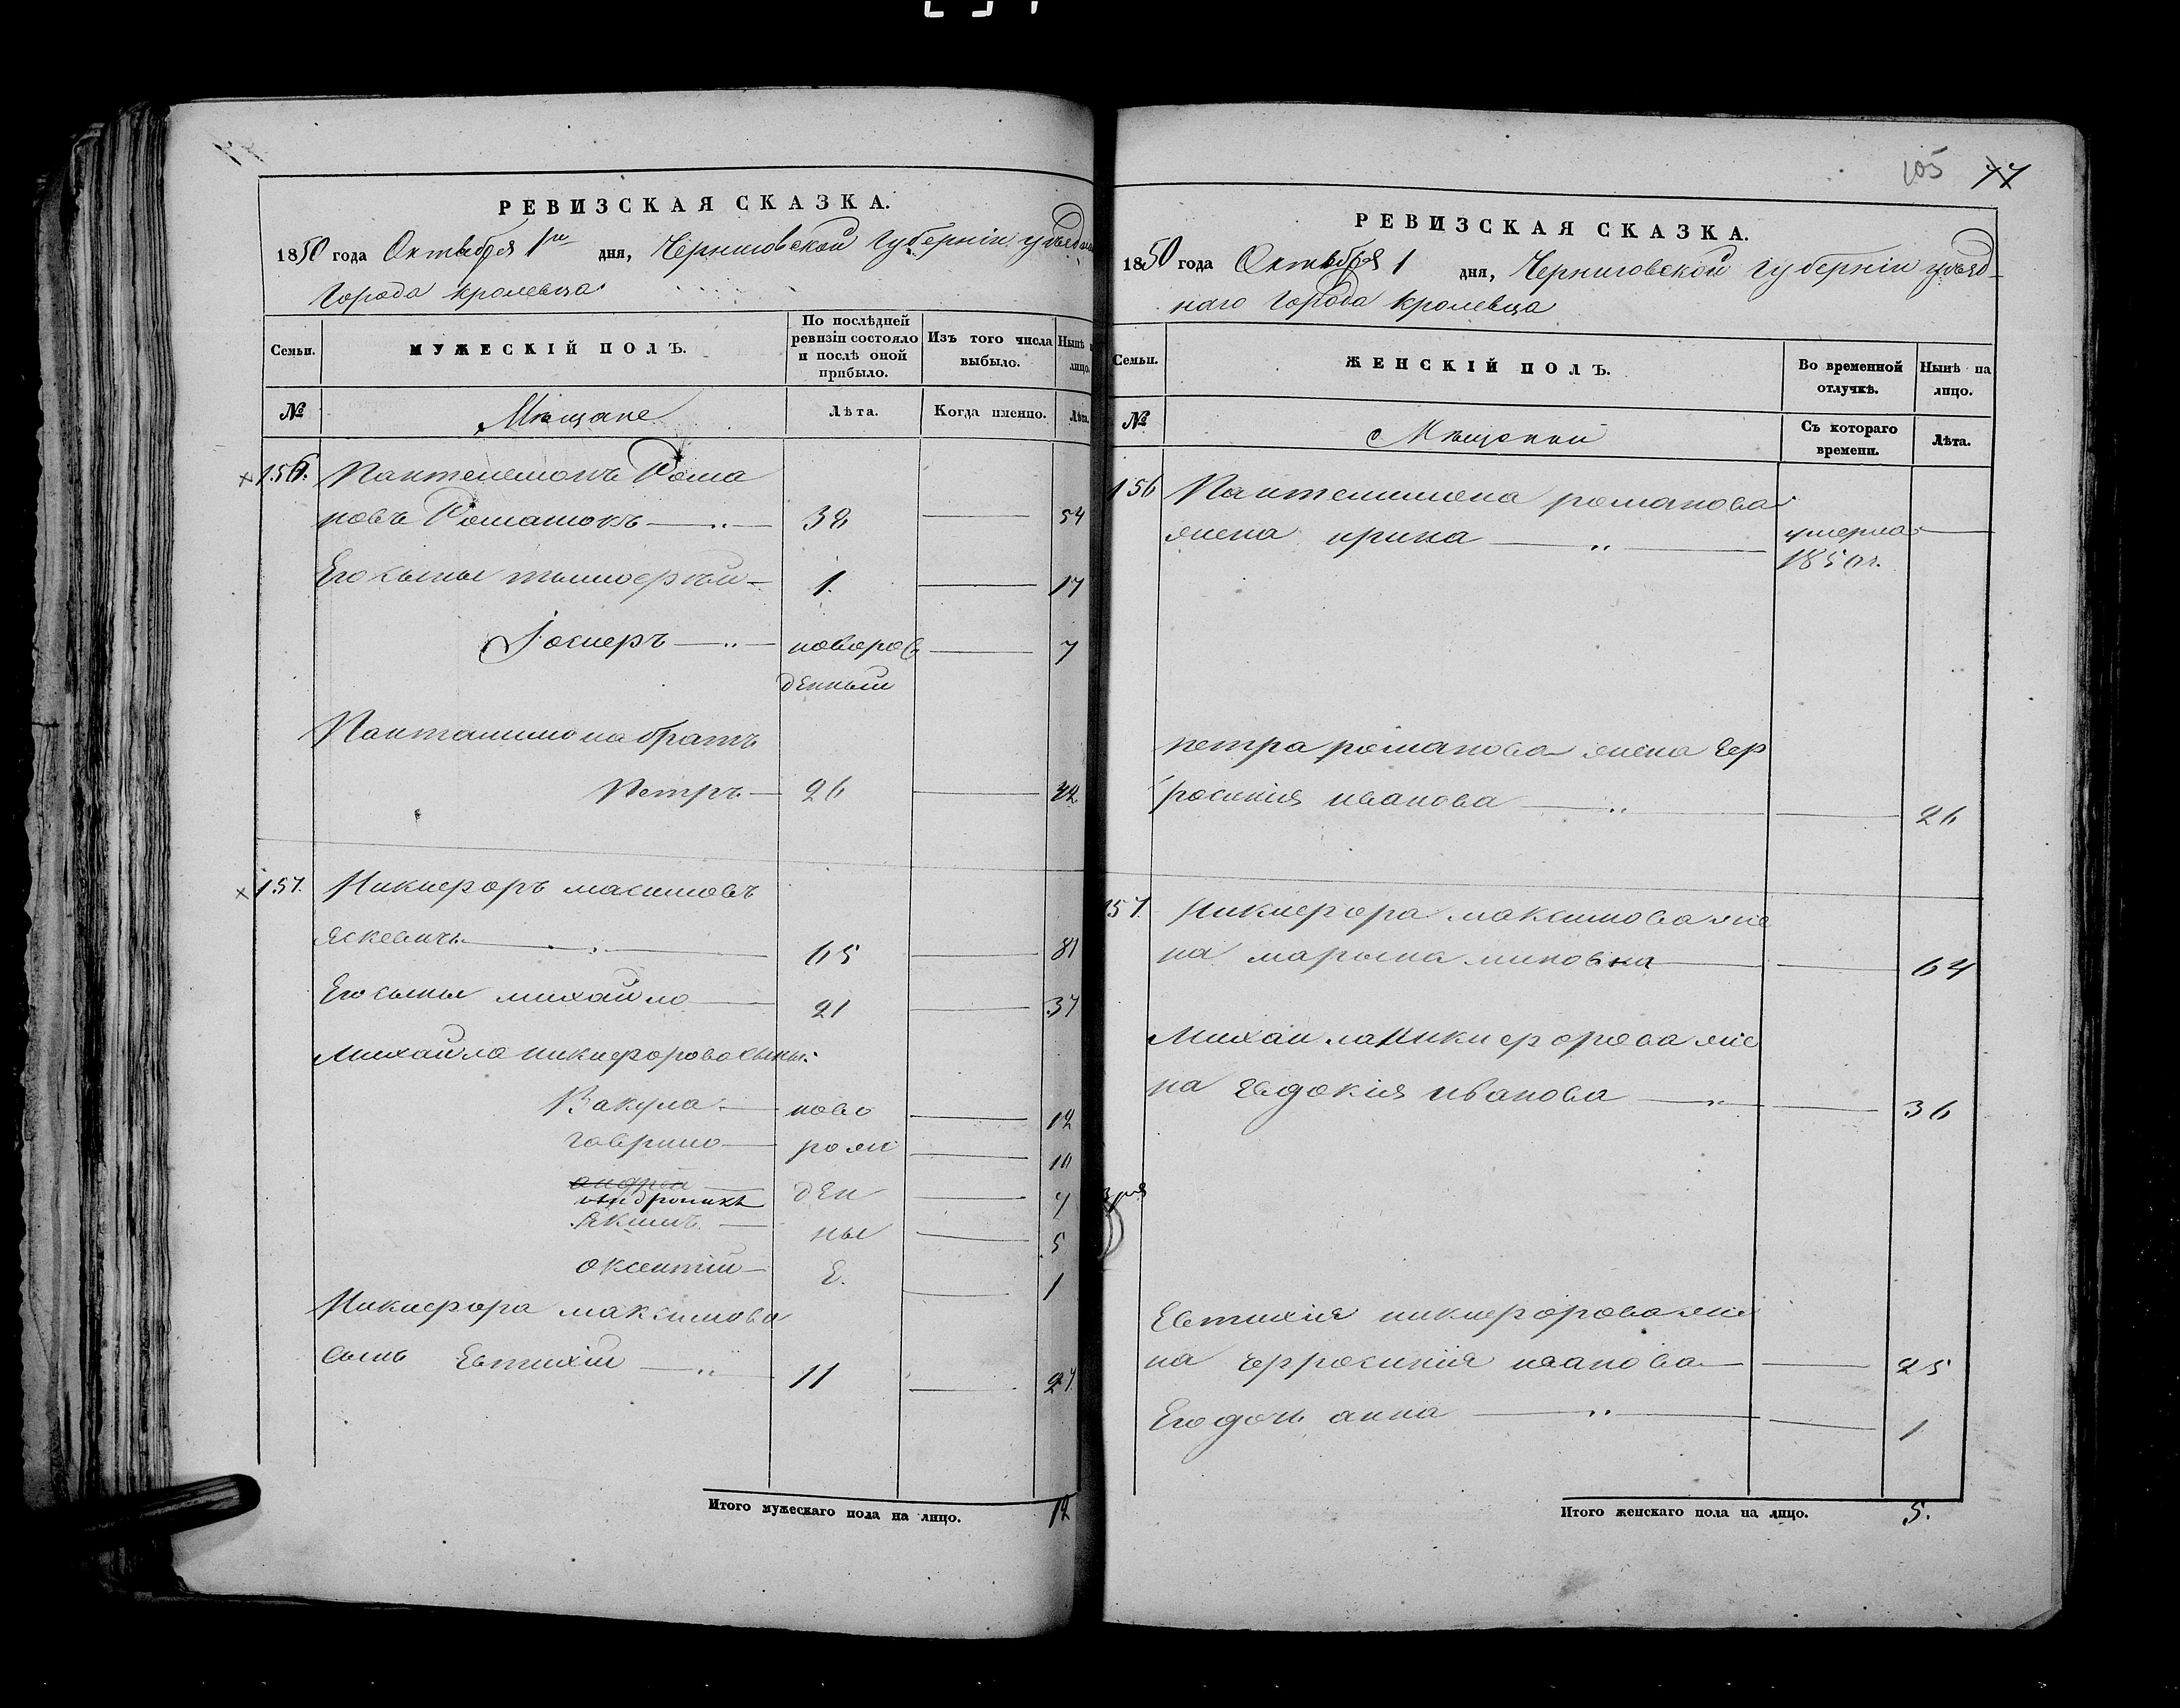 РЕВИЗСКАЯ СКАЗКА.
1850 года Октября 1го дня, Черниговской Губерніи уѣзднаго
Города Кролевца
Семьи. МУЖЕСКІЙ ПОЛЪ. По послѣдней ревизіи состояло и послѣ оной прибыло. Изъ того числа выбыло. Нынѣ на лицо.
№ Мѣщане Лѣта. Когда именно. Лѣта.
156. Пантелемонъ Рома
новъ Романюкъ 38 54
Его сыны тимофѣй 1. 17
Іосиеръ новорож 7
денный
Пантилимона братъ
Петръ 26 42
157. Никиефоръ масимовъ
Яскевичъ 65 81
Его сыны михайло 21 37
Михайла никиефорова сыны:
Вакула ново 12
гаврило рож 10
андрей ден 7
андроникъ
Якимъ ны 5
оксентій Е. 1
Никиефора максимова
сынъ Евтихій 11 27
Итого мужескаго пола на лицо. 12
105 77
РЕВИЗСКАЯ СКАЗКА.
1850 года Октября 1 дня, Черниговской губерніи уѣзд-
наго Города Кролевца
Семьи. ЖЕНСКІЙ ПОЛЪ. Во временной отлучкѣ. Нынѣ на лицо.
№ Мѣщанки Съ котораго времени. Лѣта.
156 Пантелимона романова
жена ирина умерла
1850 г.
петра романова жена Еф
росинія иванова 26
157. Никиефора максимова же
на марьяна миновна 64
Михайла Никиефорова же
на Евдокія иванова 36
Евтихія никиефорова же
на Ефросинія иванова 25
Его дочь анна 1
Итого женскаго пола на лицо. 5.